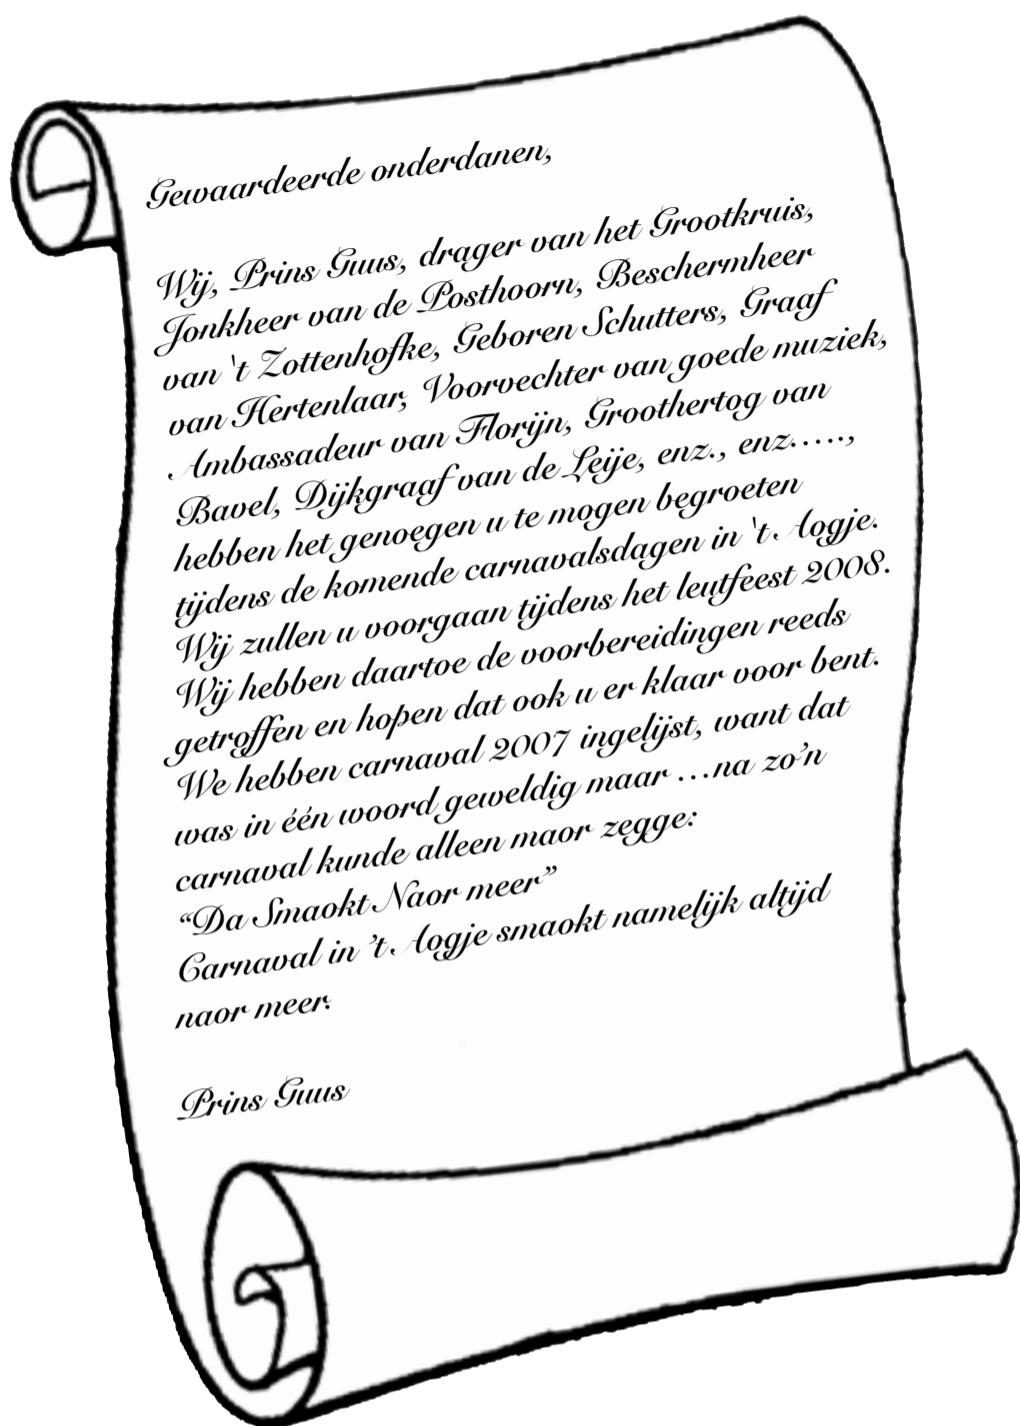 Gewaardeerde onderdanen,
Wij, Prins Guus, drager van het Grootkruis,
Jonkheer van de Posthoorn, Beschermheer
van 't Zottenhofke, Geboren Schutters, Graaf
van Hertenlaar, Voorvechter van goede muziek,
Ambassadeur van Florijn, Groothertog van
Bavel, Dijkgraaf van de Leije, enz., enz.....,
hebben het genoegen u te mogen begroeten
tijdens de komende carnavalsdagen in 't Aogje.
Wij zullen u voorgaan tijdens het leutfeest 2008.
Wij hebben daartoe de voorbereidingen reeds
getroffen en hopen dat ook u er klaar voor bent.
We hebben carnaval 2007 ingelijst, want dat
was in één woord geweldig maar ...na zo'n
carnaval kunde alleen maor zegge:
“Da Smaokt Naor meer”
Carnaval in 't Aogje smaokt namelijk altijd
naor meer.
Prins Guus